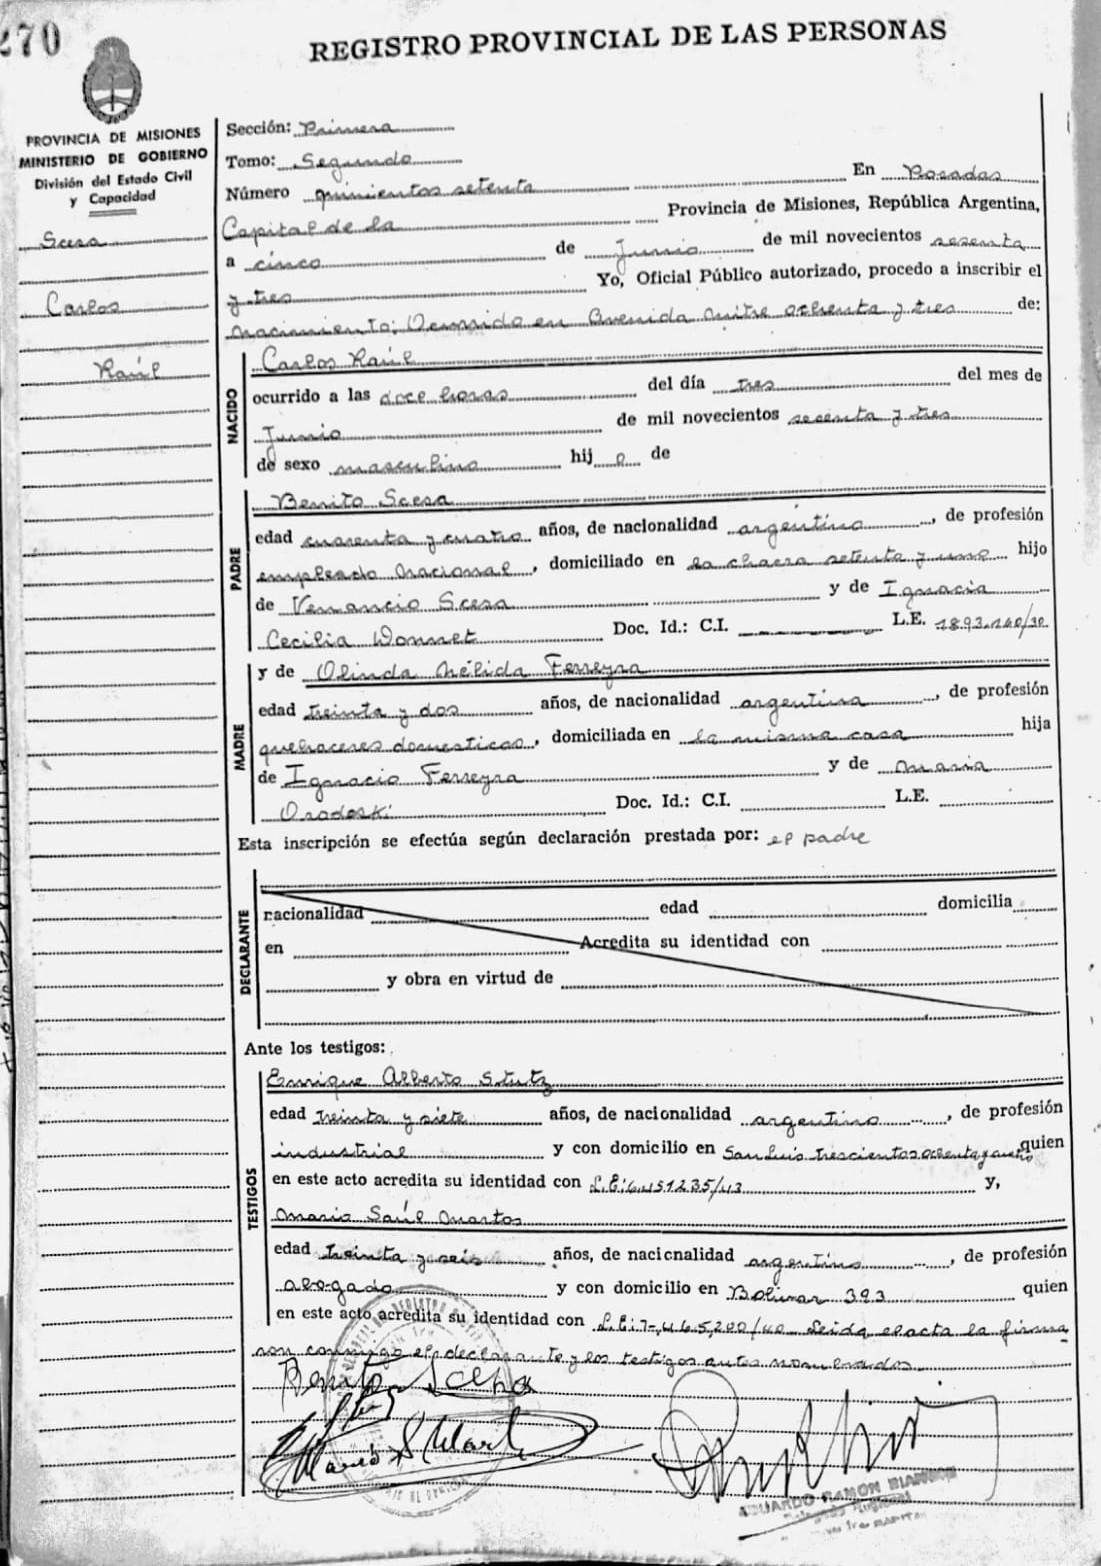 270
REGISTRO PROVINCIAL DE LAS PERSONAS
PROVINCIA DE MISIONES
MINISTERIO DE GOBIERNO
División del Estado Civil
y Capacidad
Scesa
Carlos
Raúl
Sección: Primera
Tomo: Segundo
Número quinientos setenta En Posadas
Capital de la Provincia de Misiones, República Argentina,
a cinco de Junio de mil novecientos sesenta
y tres Yo, Oficial Público autorizado, procedo a inscribir el
nacimiento; Ocurrido en Avenida Mitre ochenta y tres de:
NACIDO
Carlos Raúl
ocurrido a las doce horas del día tres del mes de
Junio de mil novecientos sesenta y tres
de sexo masculino hij o de
PADRE
Benito Scesa
edad cuarenta y cuatro años, de nacionalidad argentino, de profesión
empleado nacional, domiciliado en la chacra setenta y uno hijo
de Venancio Scesa y de Ignacia
Cecilia Wonnet Doc. Id.: C.I. L.E. 1893.140/30
MADRE
y de Olinda Nélida Ferreyra
edad treinta y dos años, de nacionalidad argentina, de profesión
quehaceres domesticos, domiciliada en la misma casa hija
de Ignacio Ferreyra y de María
Oradoski Doc. Id.: C.I. L.E.
Esta inscripción se efectúa según declaración prestada por: el padre
DECLARANTE
nacionalidad edad domicilia
en Acredita su identidad con
y obra en virtud de
Ante los testigos:
TESTIGOS
Enrique Alberto Stutz
edad treinta y siete años, de nacionalidad argentino, de profesión
industrial y con domicilio en San Luis trescientos ochenta y quien
en este acto acredita su identidad con L.E: 6.451235/43 y,
Mario Saúl Martos
edad treinta y seis años, de nacionalidad argentino, de profesión
abogado y con domicilio en Bolivar 393 quien
en este acto acredita su identidad con L.E: 7.465,200/40 Leida el acta la firma
son conmigo el declarante y los testigos antes nombrados
Benito Scesa
Mario S Mart
EDUARDO RAMON